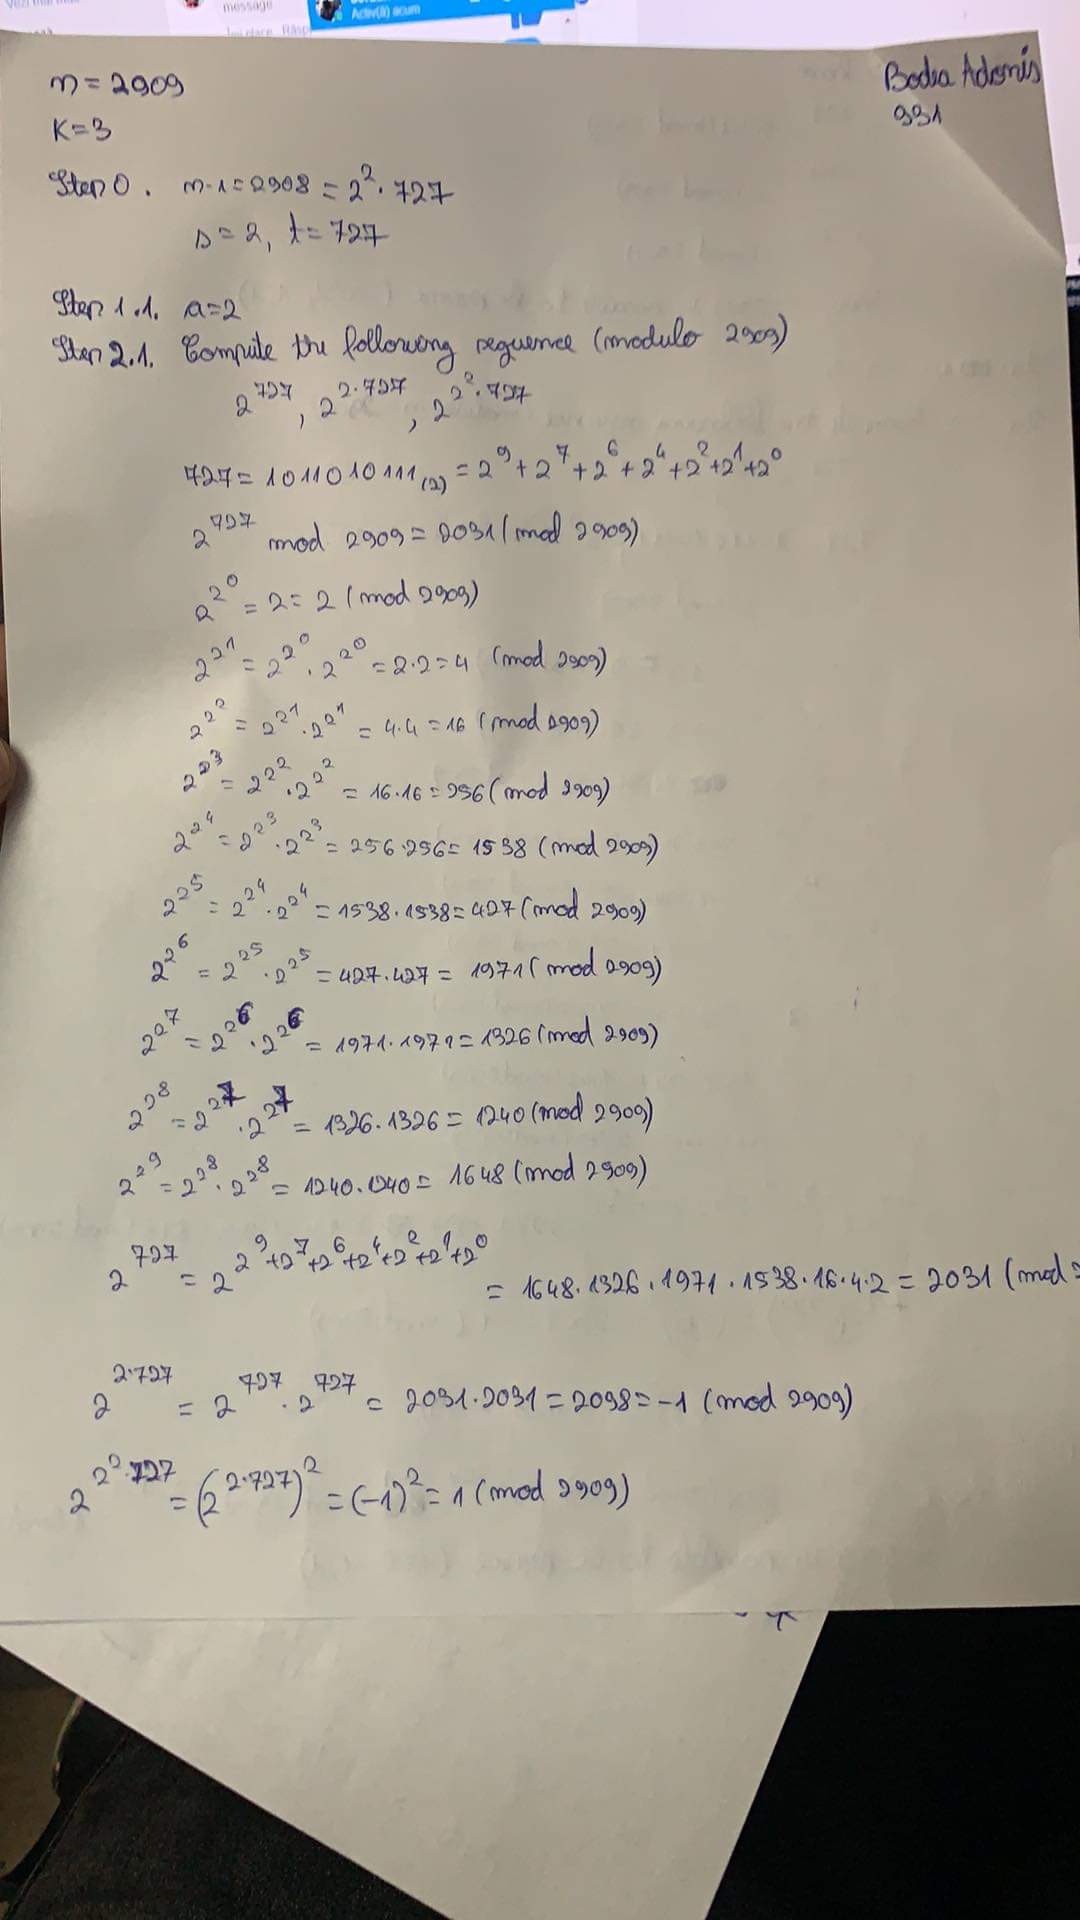 message
Activ(ă) acum
n = 2909
Bodea Adonis
K=3
931
Step 0. n-1 = 2908 = 2^2 · 727
s = 2, t = 727
Step 1.1. a=2
Step 2.1. Compute the following sequence (modulo 2909)
2^727, 2^(2·727), 2^(2^2·727)
727 = 1011010111(2) = 2^9 + 2^7 + 2^6 + 2^4 + 2^2 + 2^1 + 2^0
2^727 mod 2909 = 2031 (mod 2909)
2^2^0 = 2 = 2 (mod 2909)
2^2^1 = 2^2^0 · 2^2^0 = 2·2 = 4 (mod 2909)
2^2^2 = 2^2^1 · 2^2^1 = 4·4 = 16 (mod 2909)
2^2^3 = 2^2^2 · 2^2^2 = 16·16 = 256 (mod 2909)
2^2^4 = 2^2^3 · 2^2^3 = 256·256 = 1538 (mod 2909)
2^2^5 = 2^2^4 · 2^2^4 = 1538·1538 = 427 (mod 2909)
2^2^6 = 2^2^5 · 2^2^5 = 427·427 = 1971 (mod 2909)
2^2^7 = 2^2^6 · 2^2^6 = 1971·1971 = 1326 (mod 2909)
2^2^8 = 2^2^7 · 2^2^7 = 1326·1326 = 1240 (mod 2909)
2^2^9 = 2^2^8 · 2^2^8 = 1240·1240 = 1648 (mod 2909)
2^727 = 2^(2^9+2^7+2^6+2^4+2^2+2^1+2^0) = 1648·1326·1971·1538·16·4·2 = 2031 (mod
2^(2·727) = 2^727 · 2^727 = 2031·2031 = 2098 = -1 (mod 2909)
2^(2^2·727) = (2^(2·727))^2 = (-1)^2 = 1 (mod 2909)